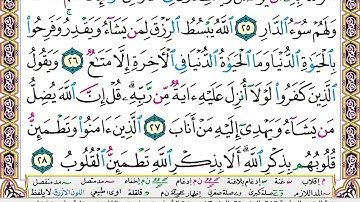 وَلَهُمْ سُوٓءُ ٱلدَّارِ ٢٥ ٱللَّهُ يَبْسُطُ ٱلرِّزْقَ لِمَن يَشَآءُ وَيَقْدِرُ ۚ وَفَرِحُوا۟
بِٱلْحَيَوٰةِ ٱلدُّنْيَا وَمَا ٱلْحَيَوٰةُ ٱلدُّنْيَا فِى ٱلْـَٔاخِرَةِ إِلَّا مَتَـٰعٌ ٢٦ وَيَقُولُ
ٱلَّذِينَ كَفَرُوا۟ لَوْلَآ أُنزِلَ عَلَيْهِ ءَايَةٌ مِّن رَّبِّهِۦ ۗ قُلْ إِنَّ ٱللَّهَ يُضِلُّ
مَن يَشَآءُ وَيَهْدِىٓ إِلَيْهِ مَنْ أَنَابَ ٢٧ ٱلَّذِينَ ءَامَنُوا۟ وَتَطْمَئِنُّ
قُلُوبُهُم بِذِكْرِ ٱللَّهِ ۗ أَلَا بِذِكْرِ ٱللَّهِ تَطْمَئِنُّ ٱلْقُلُوبُ ٢٨